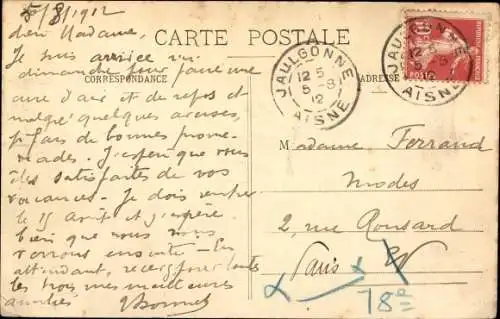 5/8/1912
CARTE POSTALE
CORRESPONDANCE
ADRESSE
JAULGONNE
12 5
5 -8
12
AISNE
JAULGONNE
12 5
5 -8
AISNE
10
POSTES
Madame,
Je suis arrivée ici
dimanche pour faire une
cure d'air et de repos et
malgré quelques averses,
je fais de bonnes prome-
nades. J'espère que vous
êtes satisfaites de vos
vacances. Je dois rentrer
le 15 Août et j'espère
bien que nous nous
verrons ensuite. En
attendant, recevez toutes
les trois mes meilleures
amitiés
Madame Ferrand
Modes
2, rue Ronsard
Paris
18e